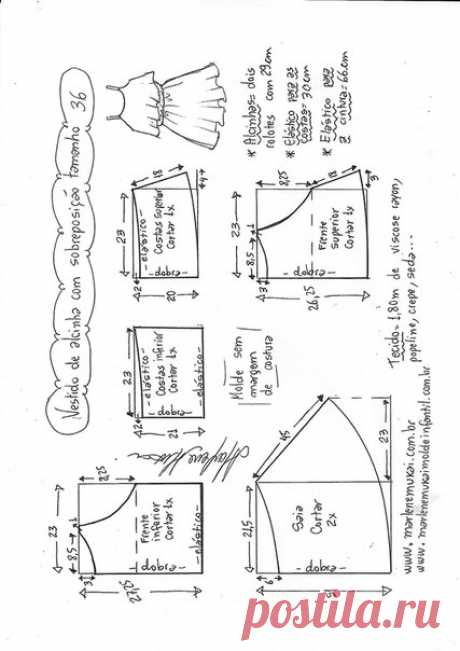 Vestido de alcinha com sobreposição tamanho 36
* Alcinhas= dois
rolotes com 29cm
* Elástico para as
costas= 30cm
* Elástico para
a cintura= 66cm
23
2
-elástico-
Costas superior
Cortar 1x
-dobra-
20
18
4
23
8,5
1
8,25
3
Frente
superior
Cortar 1x
-dobra-
26,25
18
3
23
2
-elástico-
Costas inferior
Cortar 1x
-dobra-
-elástico-
21
Molde sem
margem
de costura
Tecido= 1,80m de viscose rayon,
popeline, crepe, seda...
Marlene Mukai
23
8,5
1
8,25
3
Frente
inferior
Cortar 1x
-dobra-
-elástico-
27,25
21,5
45
6
Saia
Cortar
2x
-dobra-
23
www.marlenemukai.com.br
www.marlenemukaimoldeinfantil.com.br
postila.ru